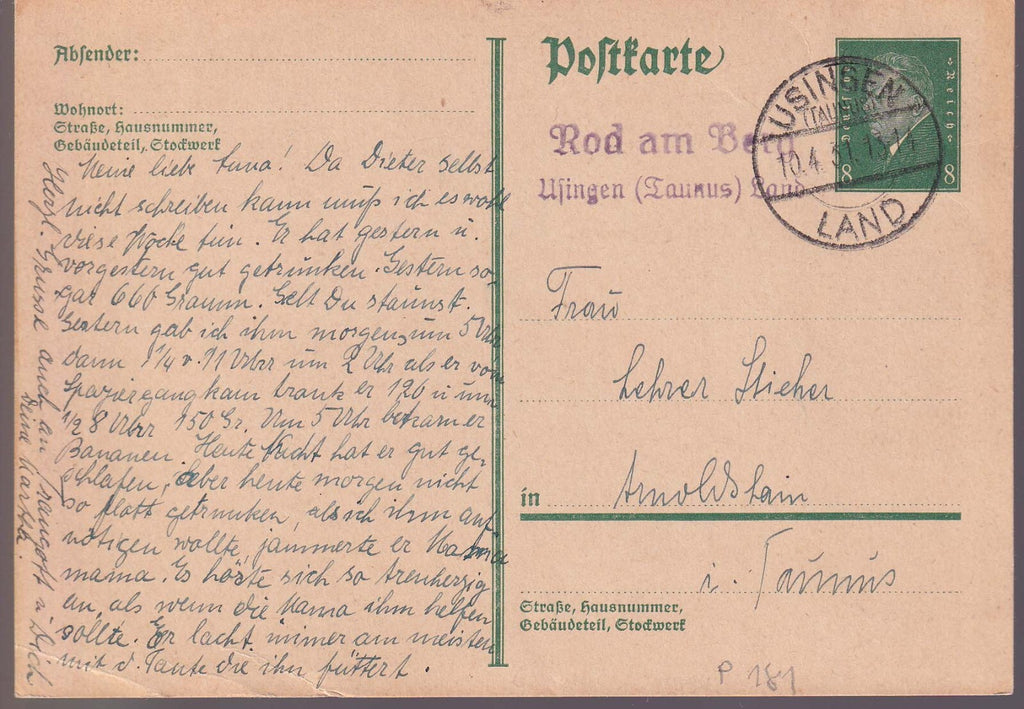 Absender:
Wohnort:
Straße, Hausnummer,
Gebäudeteil, Stockwerk
Meine liebe Anna! Da Dieter selbst
nicht schreiben kann muß ich es wohl
diese Woche tun. Er hat gestern u.
vorgestern gut getrunken. Gestern so-
gar 660 Gramm. Gelt Du staunst.
Gestern gab ich ihm morgens um 5 Uhr
dann 1/4 v. 11 Uhr um 2 Uhr als er vom
Spaziergang kam trank er 120 u um
1/2 8 Uhr 150 Gr. Um 5 Uhr bekam er
Bananen. Heute Nacht hat er gut ge-
schlafen, aber heute morgen nicht
so flott getrunken, als ich ihm auf
nötigen wollte, jammerte er Mama
mama. Es hörte sich so treuherzig
an, als wenn die Mama ihm helfen
sollte. Er lacht immer am meisten
mit d. Tante die ihn füttert.
Herzl. Grüsse auch an u Dich
Deine
Postkarte
Deutsches Reich
8 8
USINGEN
(TAUNUS)
10.4.31.
LAND
Rod am Berg
Usingen (Taunus) Land
Frau
Lehrer Stieher
in Arnoldshain
i. Taunus
Straße, Hausnummer,
Gebäudeteil, Stockwerk
P 181